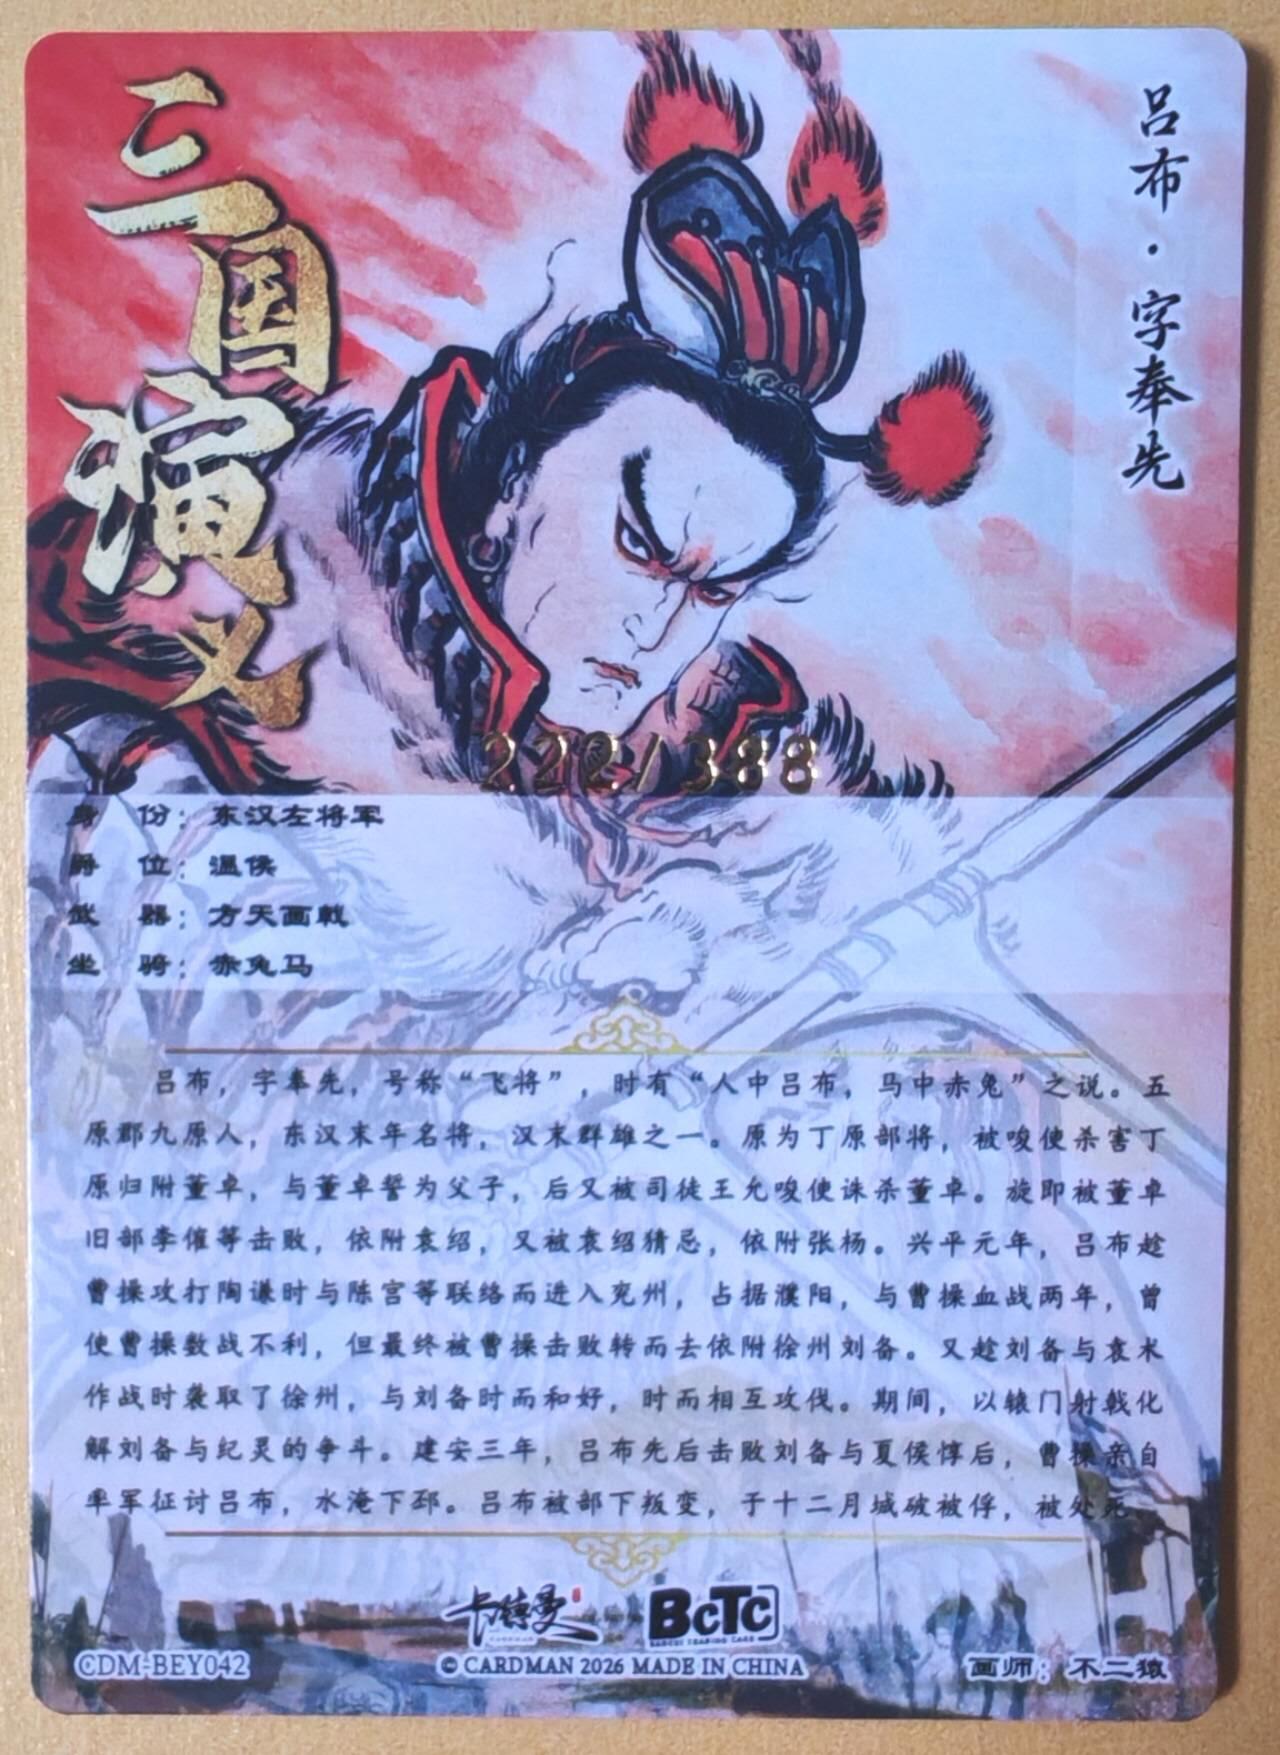 三国演义
吕布·字奉先
222/388
身 份：东汉左将军
爵 位：温侯
武 器：方天画戟
坐 骑：赤兔马
吕布，字奉先，号称“飞将”，时有“人中吕布，马中赤兔”之说。五
原郡九原人，东汉末年名将，汉末群雄之一。原为丁原部将，被唆使杀害丁
原归附董卓，与董卓誓为父子，后又被司徒王允唆使诛杀董卓。旋即被董卓
旧部李傕等击败，依附袁绍，又被袁绍猜忌，依附张杨。兴平元年，吕布趁
曹操攻打陶谦时与陈宫等联络而进入兖州，占据濮阳，与曹操血战两年，曾
使曹操数战不利，但最终被曹操击败转而去依附徐州刘备。又趁刘备与袁术
作战时袭取了徐州，与刘备时而和好，时而相互攻伐。期间，以辕门射戟化
解刘备与纪灵的争斗。建安三年，吕布先后击败刘备与夏侯惇后，曹操亲自
率军征讨吕布，水淹下邳。吕布被部下叛变，于十二月城破被俘，被处死。
卡德曼
BCTC
CDM-BEY042
© CARDMAN 2026 MADE IN CHINA
画师：不二猿